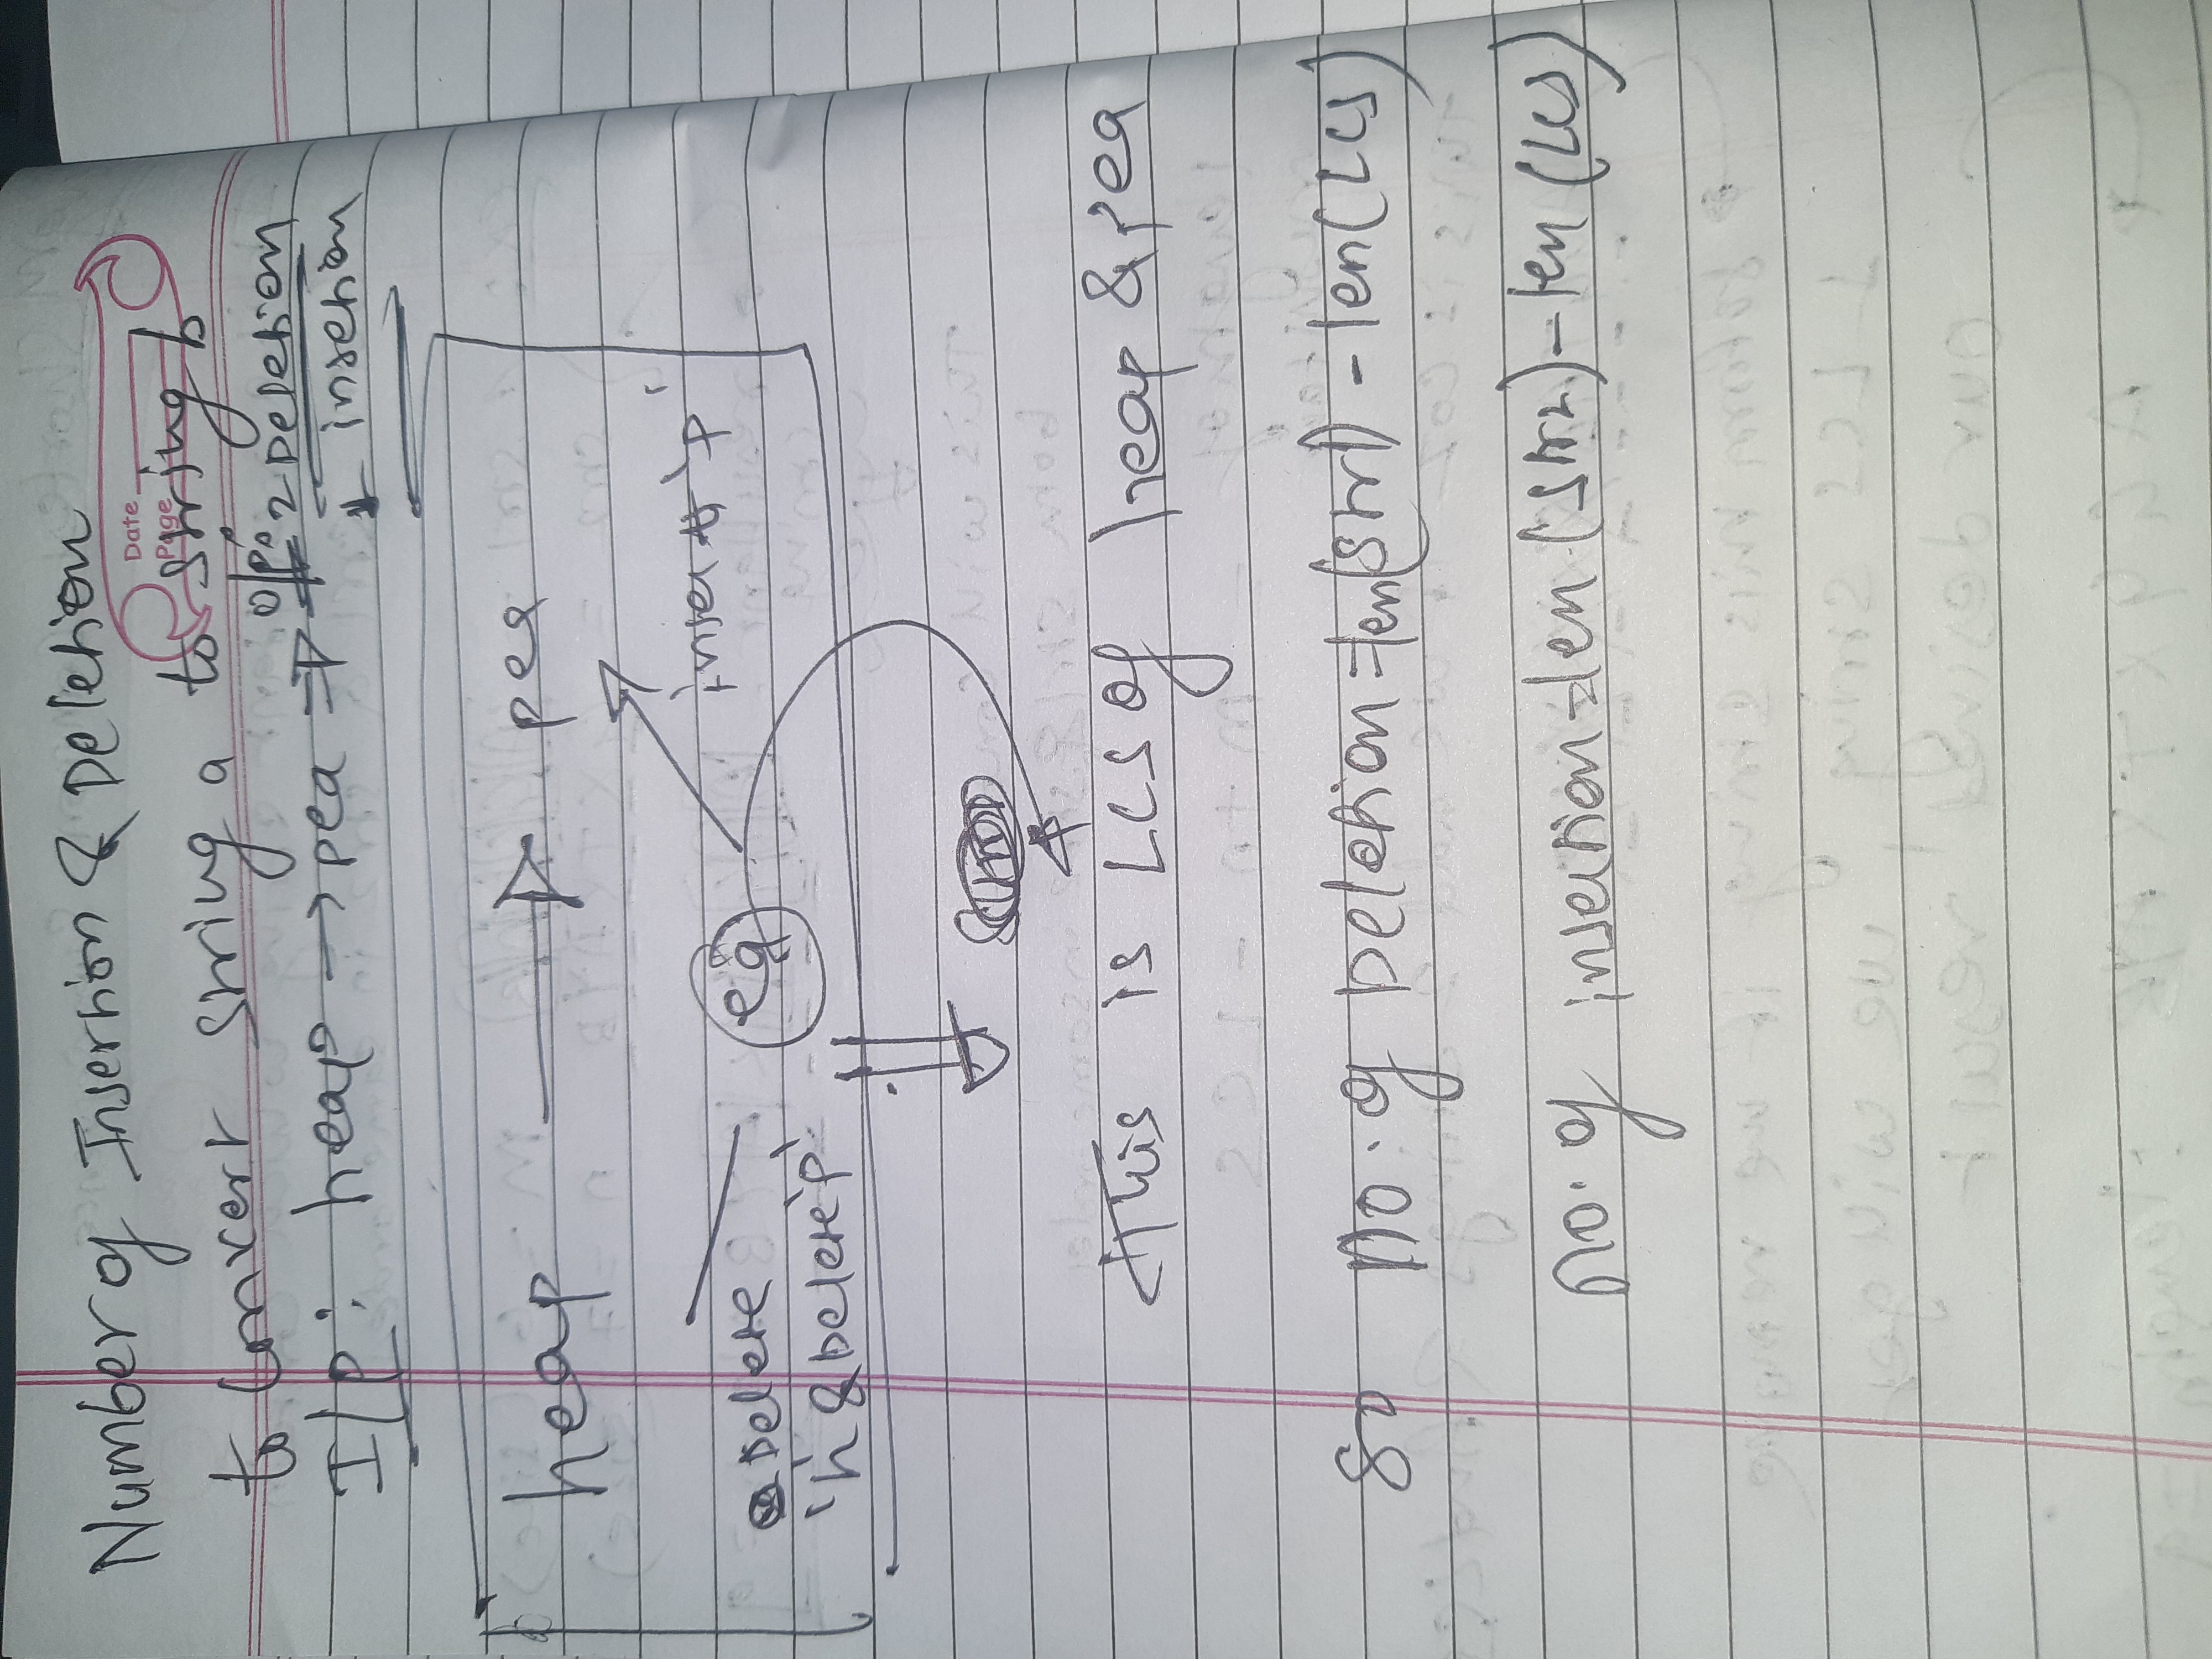 Number of Insertion & Deletion
Date
Page
to Convert string a to string b
I/P: heap → pea ⇒ O/P: 2 Deletion
1 insetion
heap → pea
insert 'p'
ea
Delete
'h' & Delete 'p'
This is LCS of heap & pea
So no. of Deletion = len(str1) - len(LCS)
no. of insertion = len(str2) - len(LCS)